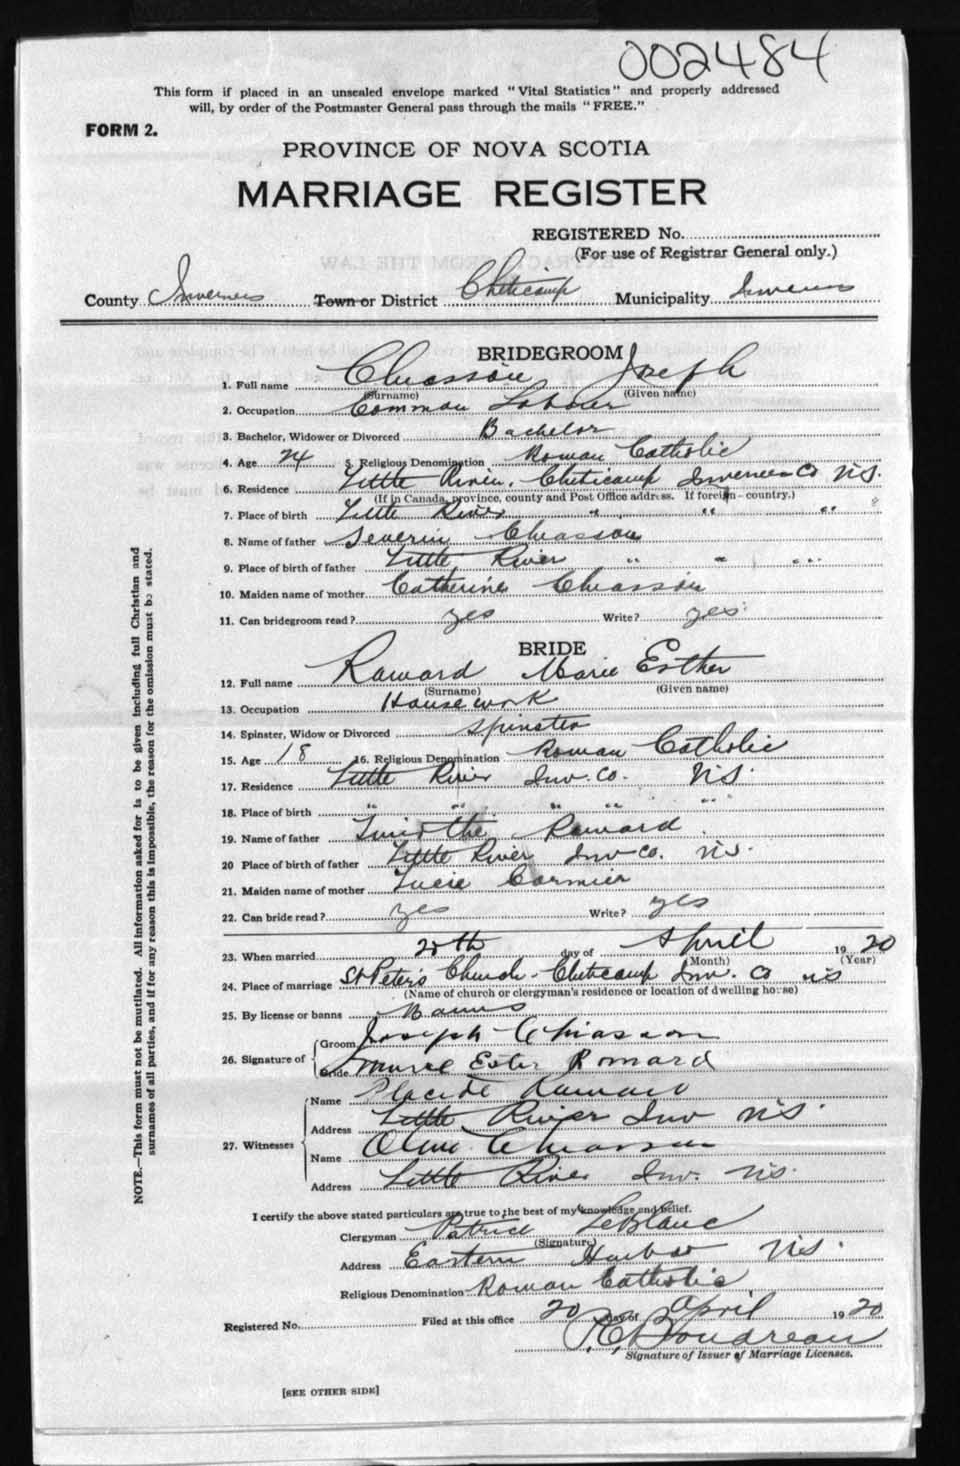 002484
This form if placed in an unsealed envelope marked "Vital Statistics" and properly addressed
will, by order of the Postmaster General pass through the mails "FREE."
FORM 2.
PROVINCE OF NOVA SCOTIA
MARRIAGE REGISTER
REGISTERED No.
(For use of Registrar General only.)
County Inverness Town or District Cheticamp Municipality Inverness
BRIDEGROOM
1. Full name Chiasson Joseph
(Surname) (Given name)
2. Occupation Common Labour
3. Bachelor, Widower or Divorced Bachelor
4. Age 24 5. Religious Denomination Roman Catholic
6. Residence Little River, Cheticamp Inverness Co N.S.
(If in Canada, province, county and Post Office address. If foreign - country.)
7. Place of birth Little River " " " "
8. Name of father Severin Chiasson
9. Place of birth of father Little River " " "
10. Maiden name of mother Catherine Chiasson
11. Can bridegroom read? yes Write? yes
BRIDE
12. Full name Raward Marie Esther
(Surname) (Given name)
13. Occupation Housework
14. Spinster, Widow or Divorced Spinster
15. Age 18 16. Religious Denomination Roman Catholic
17. Residence Little River Inv. Co. N.S.
18. Place of birth " " " " "
19. Name of father Timothé Raward
20 Place of birth of father Little River Inv Co. N.S.
21. Maiden name of mother Lucie Cormier
22. Can bride read? yes Write? yes
23. When married 20th day of April 1920
(Month) (Year)
24. Place of marriage St Peter's Church - Cheticamp Inv. Co N S
(Name of church or clergyman's residence or location of dwelling house)
25. By license or banns Banns
26. Signature of Groom Joseph Chiasson
Bride Marie Ester Romard
27. Witnesses Name Placide Raward
Address Little River Inv N.S.
Name Chiasson
Address Little River Inv. N.S.
I certify the above stated particulars are true to the best of my knowledge and belief.
Clergyman Patrice LeBlanc
(Signature)
Address Eastern Harbor N.S.
Religious Denomination Roman Catholic
Registered No. Filed at this office 20 day of April 1920
Boudreau
Signature of Issuer of Marriage Licenses.
[SEE OTHER SIDE]
NOTE.—This form must not be mutilated. All information asked for is to be given including full Christian and
surnames of all parties, and if for any reason this is impossible, the reason for the omission must be stated.